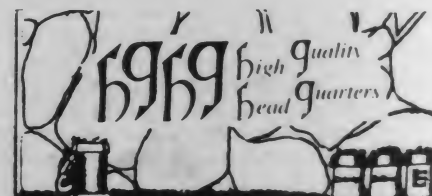 hqhq
high quality
head quarters
E